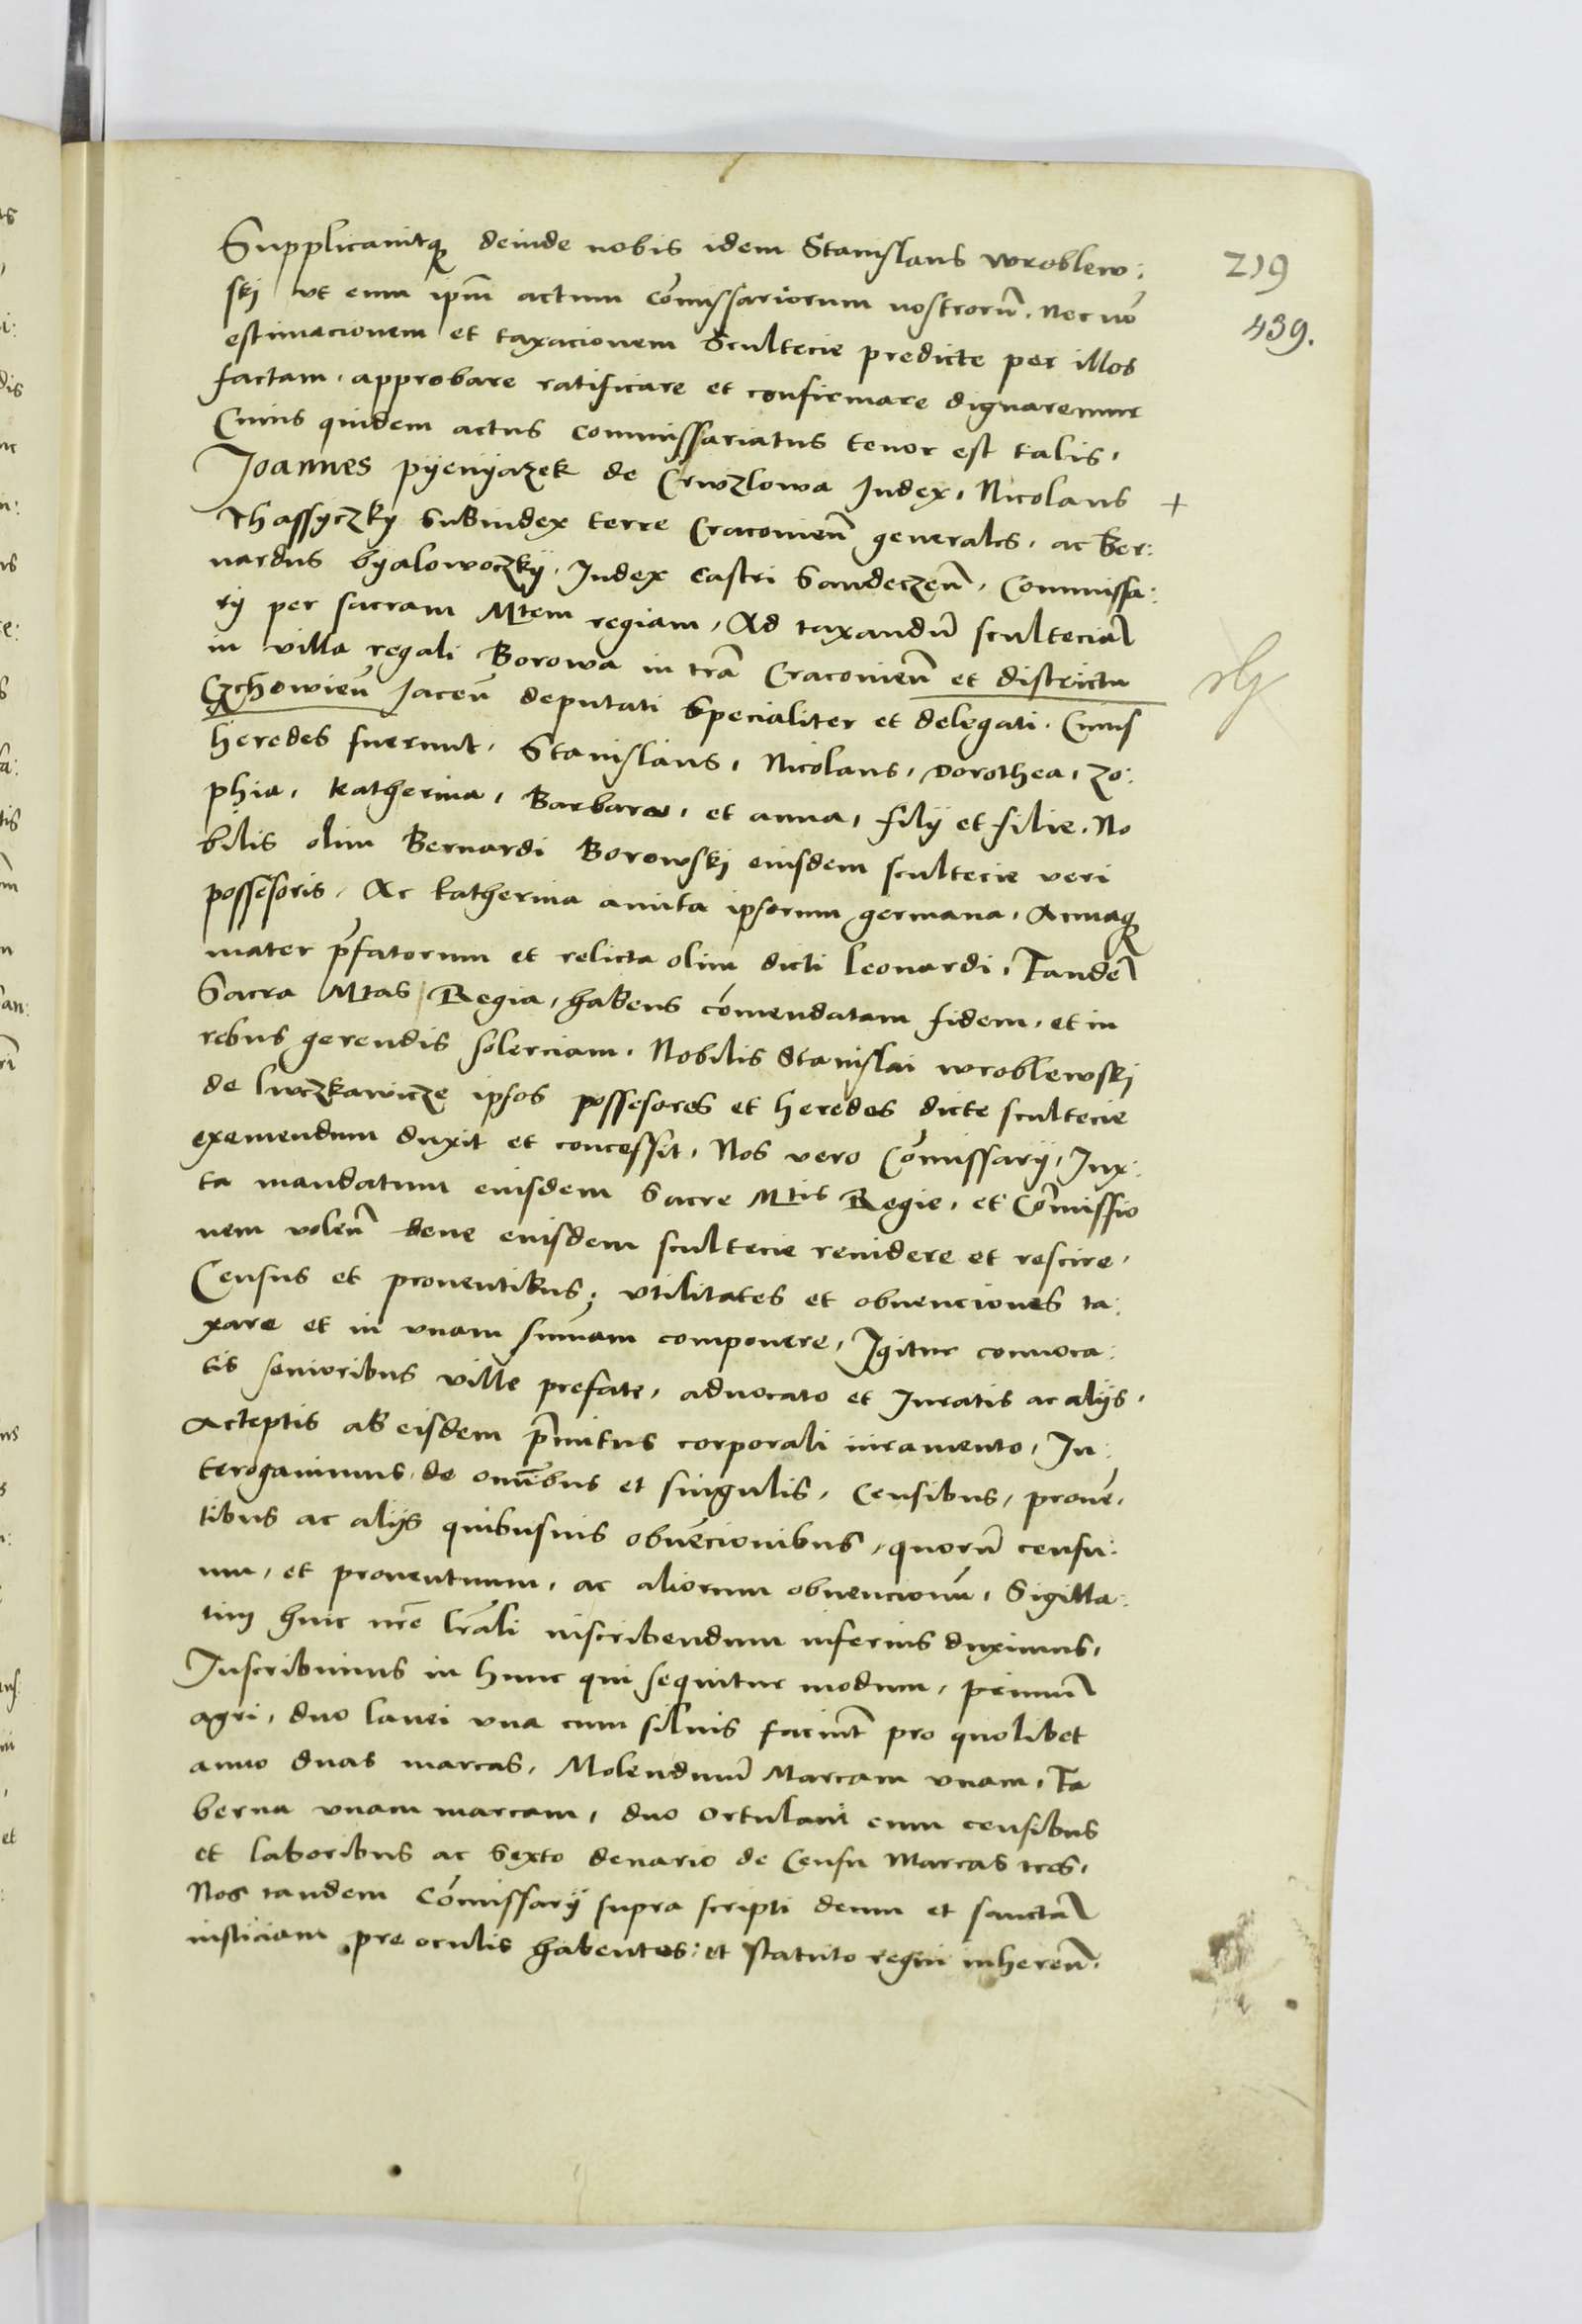 Supplicauitq deinde nobis idem Stanislaus wroblew:
219
ski vt eum ipm̄ actum com̄issariorum nostrorū. Nec nō
439.
estimacionem et taxacionem Scultecie predicte per illos
factam. approbare ratificare et confirmare dignaremur
Cuius quidem actus commissariatus tenor est talis,
Joannes pÿenÿazek de Crwzlowa Judex, Nicolaus +
Thassyczky Subiudex terre Cracovien̄ generales, ac Ber:
nardus byalowoczkÿ. Judex Castri Sandeczen̄, Commissa:
rij per sacram Mtem regiam, Ad taxandū scultecia
in villa regali Borowa in trā Cracovien̄ et districtu
Czchowien̄ Jacen̄ deputati Specialiter et delegati. Cuius
heredes fuerunt, Stanislaus, Nicolaus, Dorothea, Zo:
phia, katherina, Barbara, et anna, filÿ et filie. No
bilis olim Bernardi Borowski eiusdem scultecie veri
possesoris. Ac katherina amita ipsorum germana, Annaq
mater p̄fatorum et relicta olim dicti Leonardi, Tandē
Sacra Mtas Regia, habens cōmendatam fidem, et in
rebus gerendis solerciam. Nobilis Stanislai wroblewski
de lwczkawicze ipsos possesores et heredes dicte scultecie
exemendum duxit et concessit, Nos vero Cōmissarÿ, Jux:
ta mandatum eiusdem Sacre Mtis Regie, et Cōmissio
nem volen̄ bene eiusdem scultecie reuidere et rescire,
Census et prouentibus; vtilitates et obuenciones ta:
xare et in vnam sum̄am componere, Igitur conuoca:
tis senioribus ville prefate, aduocato et Juratis ac alÿs,
Acceptis ab eisdem p̄mitus corporali iuramento, In:
terogauimus. de omībus et singulis, Censibus, prouē,
tibus ac alÿs quibusuis obuēcionibus, quorū censu:
um, et prouentuum, ac aliorum obuencionū, Sigilla:
tim huic nrē lrāli inscribendum inferius duximus,
Inscribimus in hunc qui sequitur modum, primū
agri, duo lanei vna cum siluis faciunt pro quolibet
anno duas marcas, Molendinū Marcam vnam, Ta
berna vnam marcam, duo ortulani cum censibus
et laboribus ac Sexto denario de Censu Marcas tres,
Nos tandem Cōmissarÿ supra scripti deum et sanctā
iusticiam pre oculis habentes: et statuto regni inheren̄.